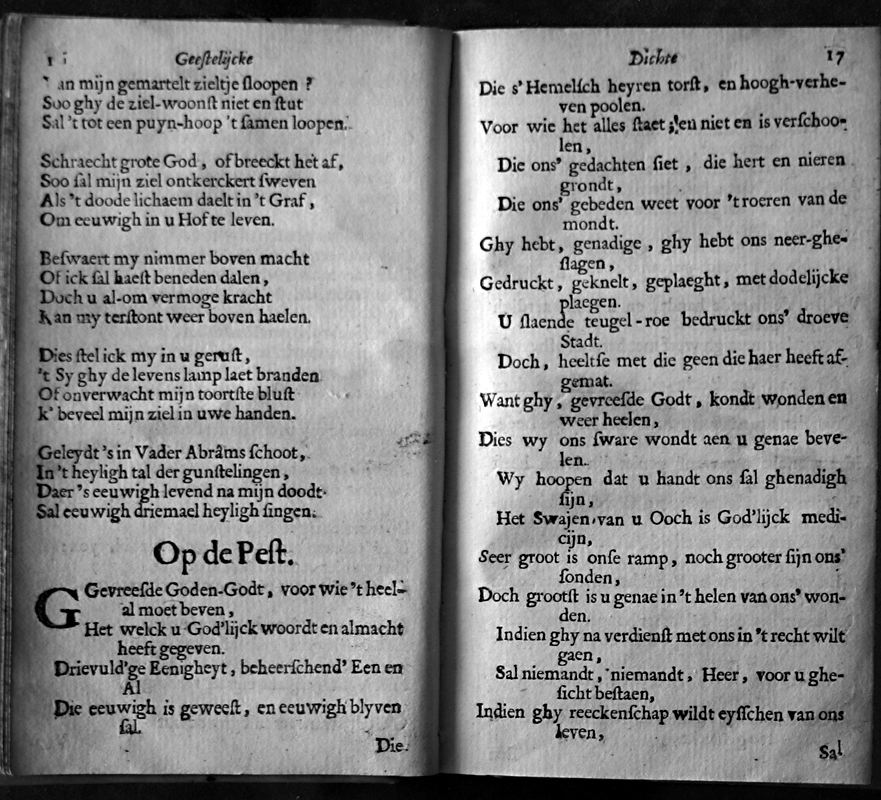 Geeſtelijcke
an mijn gemartelt zieltje ſloopen ?
Soo ghy de ziel-woonſt niet en ſtut
Sal 't tot een puyn-hoop 't ſamen loopen.

Schraecht grote God, of breeckt het af,
Soo ſal mijn ziel ontkerckert ſweven
Als 't doode lichaem daelt in 't Graf,
Om eeuwigh in u Hof te leven.

Beſwaert my nimmer boven macht
Of ick ſal haeſt beneden dalen,
Doch u al-om vermoge kracht
Kan my terſtont weer boven haelen.

Dies ſtel ick my in u geruſt,
't Sy ghy de levens lamp laet branden
Of onverwacht mijn toortſte bluſt
k' beveel mijn ziel in uwe handen.

Geleydt 's in Vader Abrâms ſchoot,
In 't heyligh tal der gunſtelingen,
Daer 's eeuwigh levend na mijn doodt
Sal eeuwigh driemael heyligh ſingen.

Op de Peſt.
GGevreeſde Goden-Godt, voor wie 't heel-
al moet beven,
Het welck u God'lijck woordt en almacht
heeft gegeven.
Drievuld'ge Eenigheyt, beheerſchend' Een en
Al
Die eeuwigh is geweeſt, en eeuwigh blyven
ſal.
Die

Dichte 17
Die s' Hemelſch heyren torſt, en hoogh-verhe-
ven poolen.
Voor wie het alles ſtaet, en niet en is verſchoo-
len,
Die ons' gedachten ſiet, die hert en nieren
grondt,
Die ons' gebeden weet voor 't roeren van de
mondt.
Ghy hebt, genadige, ghy hebt ons neer-ghe-
ſlagen,
Gedruckt, geknelt, geplaeght, met dodelijcke
plaegen.
U ſlaende teugel-roe bedruckt ons' droeve
Stadt.
Doch, heeltſe met die geen die haer heeft af-
gemat.
Want ghy, gevreeſde Godt, kondt wonden en
weer heelen,
Dies wy ons ſware wondt aen u genae beve-
len.
Wy hoopen dat u handt ons ſal ghenadigh
ſijn,
Het Swajen van u Ooch is God'lijck medi-
cijn,
Seer groot is onſe ramp, noch grooter ſijn ons'
ſonden,
Doch grootſt is u genae in 't helen van ons' won-
den.
Indien ghy na verdienſt met ons in 't recht wilt
gaen,
Sal niemandt, niemandt, Heer, voor u ghe-
ſicht beſtaen,
Indien ghy reeckenſchap wildt eyſſchen van ons
leven,
Sal